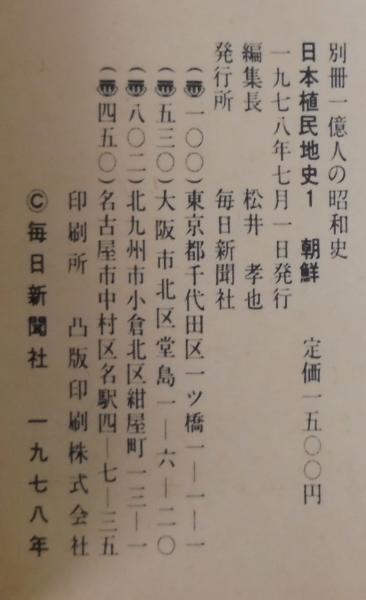 別冊一億人の昭和史
日本植民地史1 朝鮮 定価一五〇〇円
一九七八年七月一日発行
編集長 松井 孝也
発行所 毎日新聞社
(〒一〇〇)東京都千代田区一ツ橋一―一―一
(〒五三〇)大阪市北区堂島一―六―二〇
(〒八〇二)北九州市小倉北区紺屋町一三―一
(〒四五〇)名古屋市中村区名駅四―七―三五
印刷所 凸版印刷株式会社
©毎日新聞社 一九七八年